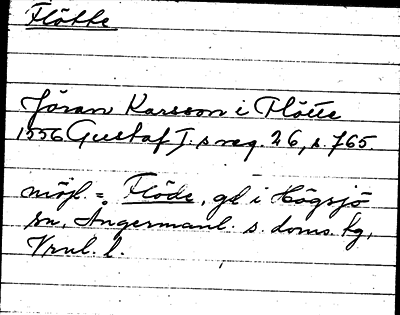 Flötte
Jöran Karsson i Flötte
1556 Gustaf I. s reg. 26, s. 765
möjl. = Flöde, gd i Högsjö
sn, Ångermanl. s. doms. kg,
Vrnl. l.